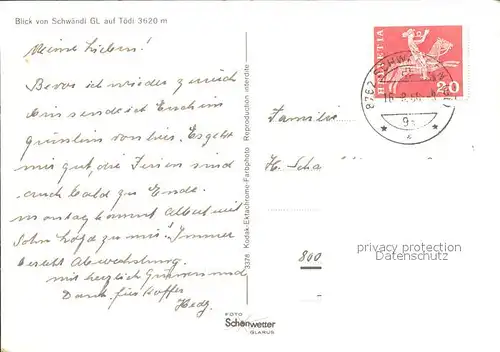 Blick von Schwändi GL auf Tödi 3620 m
Meine Lieben!
Bevor ich wieder zurück
bin sende ich Euch ein
Grüsslein von hier. Es geht
mir gut, die Ferien sind
auch bald zu Ende.
Montag kommt Albert mit
Sohn zu mir. Immer
Abwechslung.
mit herzlich Grüssen und
Dank fürs Koffer
Hedy.
3378 Kodak-Ektachrome-Farbphoto Reproduction interdite
FOTO
Schönwetter
GLARUS
HELVETIA
20
8762 SCHWÄNDI
Familie
H. Scha
800
passendeverkauf.de